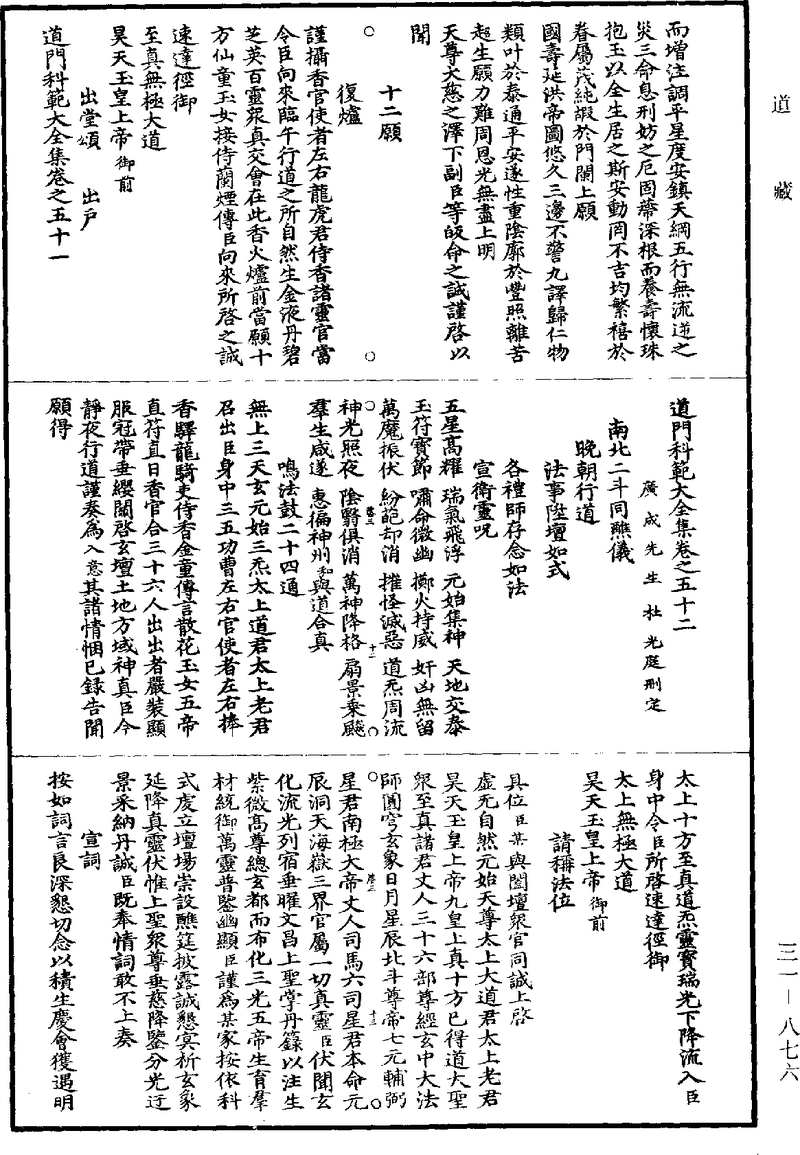 道藏
而增注調平星度安鎮天綱五行無流逆之
災三命息刑妨之厄固蔕深根而養壽懷珠
抱玉以全生居之斯安動罔不吉均繁禧於
眷屬茂純嘏於門闌上願
國壽延洪帝圖悠久三邊不警九譯歸仁物
類叶於泰通平安遂性重陰廓於豐照離苦
超生願力難周恩光無盡上明
天尊大慈之澤下副臣等皈命之誠謹啓以
聞
十二願
復爐
謹攝香官使者左右龍虎君侍香諸靈官當
令臣向來臨午行道之所自然生金液丹碧
芝英百靈眾真交會在此香火爐前當願十
方仙童玉女接侍蘭煙傳臣向來所啓之誠
速達徑御
至真無極大道
昊天玉皇上帝御前
出堂頌 出戶
道門科範大全集卷之五十一
道門科範大全集卷之五十二
廣成先生杜光庭刪定
南北二斗同醮儀
晚朝行道
法事陞壇如式
各禮師存念如法
宣衛靈呪
五星高耀 瑞氣飛浮 元始集神 天地交泰
玉符寶節 嘯命微幽 擲火持威 奸凶無留
萬魔振伏 紛葩却消 摧怪滅惡 道炁周流
神光照夜 陰翳俱消 萬神降格 扇景乘飈
羣生咸遂 惠徧神州 和與道合真
鳴法鼓二十四通
無上三天玄元始三炁太上道君太上老君
召出臣身中三五功曹左右官使者左右捧
香驛龍騎吏侍香金童傳言散花玉女五帝
直符直日香官合三十六人出出者嚴裝顯
服冠帶垂纓關啓玄壇土地方域神真臣今
靜夜行道謹奏為入意其諸情悃已錄告聞
願得
太上十方至真道炁靈寶瑞光下降流入臣
身中令臣所啓速達徑御
太上無極大道
昊天玉皇上帝御前
請稱法位
具位臣某與闔壇眾官同誠上啓
虛无自然元始天尊太上大道君太上老君
昊天玉皇上帝九皇上真十方已得道大聖
眾至真諸君丈人三十六部尊經玄中大法
師圓穹玄象日月星辰北斗尊帝七元輔弼
星君南極大帝丈人司馬六司星君本命元
辰洞天海嶽三界官屬一切真靈臣伏聞玄
化流光列宿垂曜文昌上聖掌丹籙以注生
紫微高尊總玄都而布化三光五帝生育羣
材統御萬靈普鑒幽顯臣謹為某家按依科
式虔立壇場崇設醮筵披露誠懇冥祈玄象
延降真靈伏惟上聖眾尊垂慈降鑒分光迂
景采納丹誠臣既奉情詞敢不上奏
宣詞
按如詞言良深懇切念以積生慶會獲遇明
三一—八七六